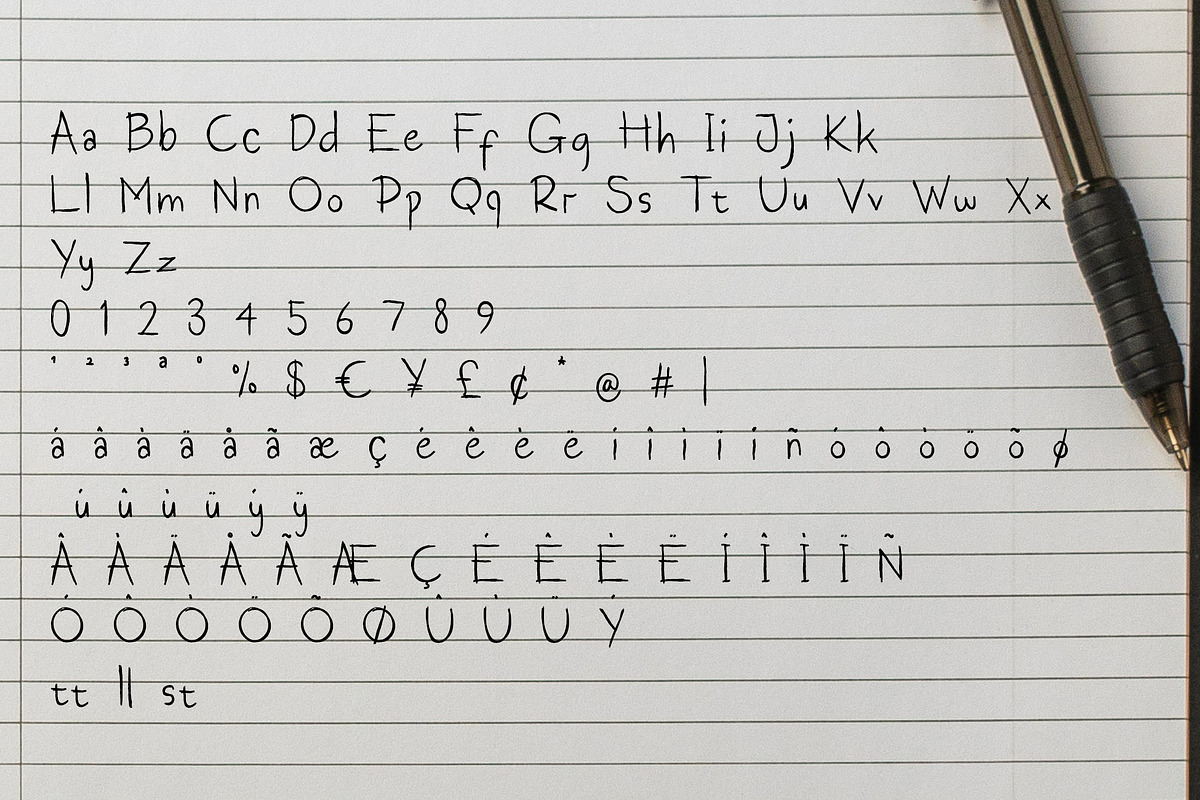 Aa Bb Cc Dd Ee Ff Gg Hh Ii Jj Kk
Ll Mm Nn Oo Pp Qq Rr Ss Tt Uu Vv Ww Xx
Yy Zz
0 1 2 3 4 5 6 7 8 9
¹ ² ³ ª º % $ € ¥ £ ¢ * @ # |
á â à ä å ã æ ç é ê è ë í î ì ï í ñ ó ô ò ö õ ø
ú û ù ü ý ÿ
Â À Ä Å Ã Æ Ç É Ê È Ë Í Î Ì Ï Ñ
Ó Ô Ò Ö Õ Ø Û Ù Ü Ý
tt ll st